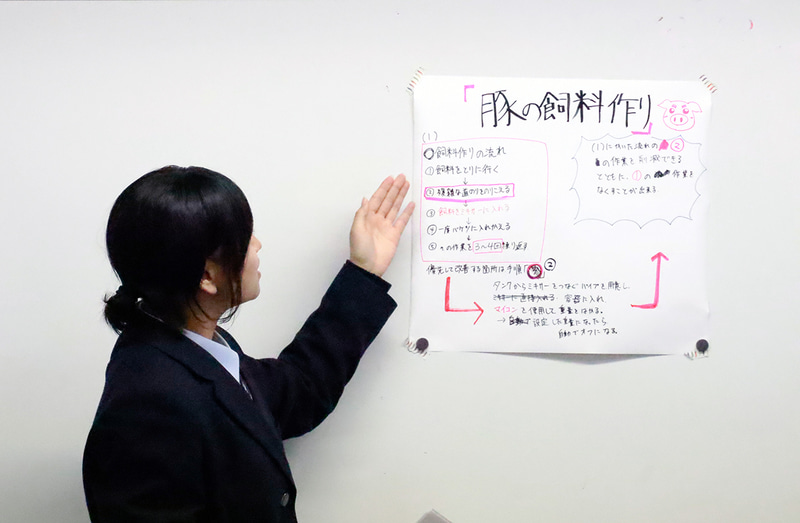 「豚の飼料作り」
(1)
飼料作りの流れ
①飼料をとりに行く
↓
②複雑な道のりをのりこえる
↓
③飼料をミキサーに入れる
↓
④一度バケツに入れかえる
↓
⑤の作業を3〜4回繰り返す
優先して改善する箇所は手順「
②
タンクからミキサーをつなぐパイプを用意し
容器に入れ
マイコンを使用して重量をはかる。
→設定した重量になったら
自動でオフになる
(1)にかいた流れの②
の作業を削減できる
とともに、①の作業を
なくすことが出来る